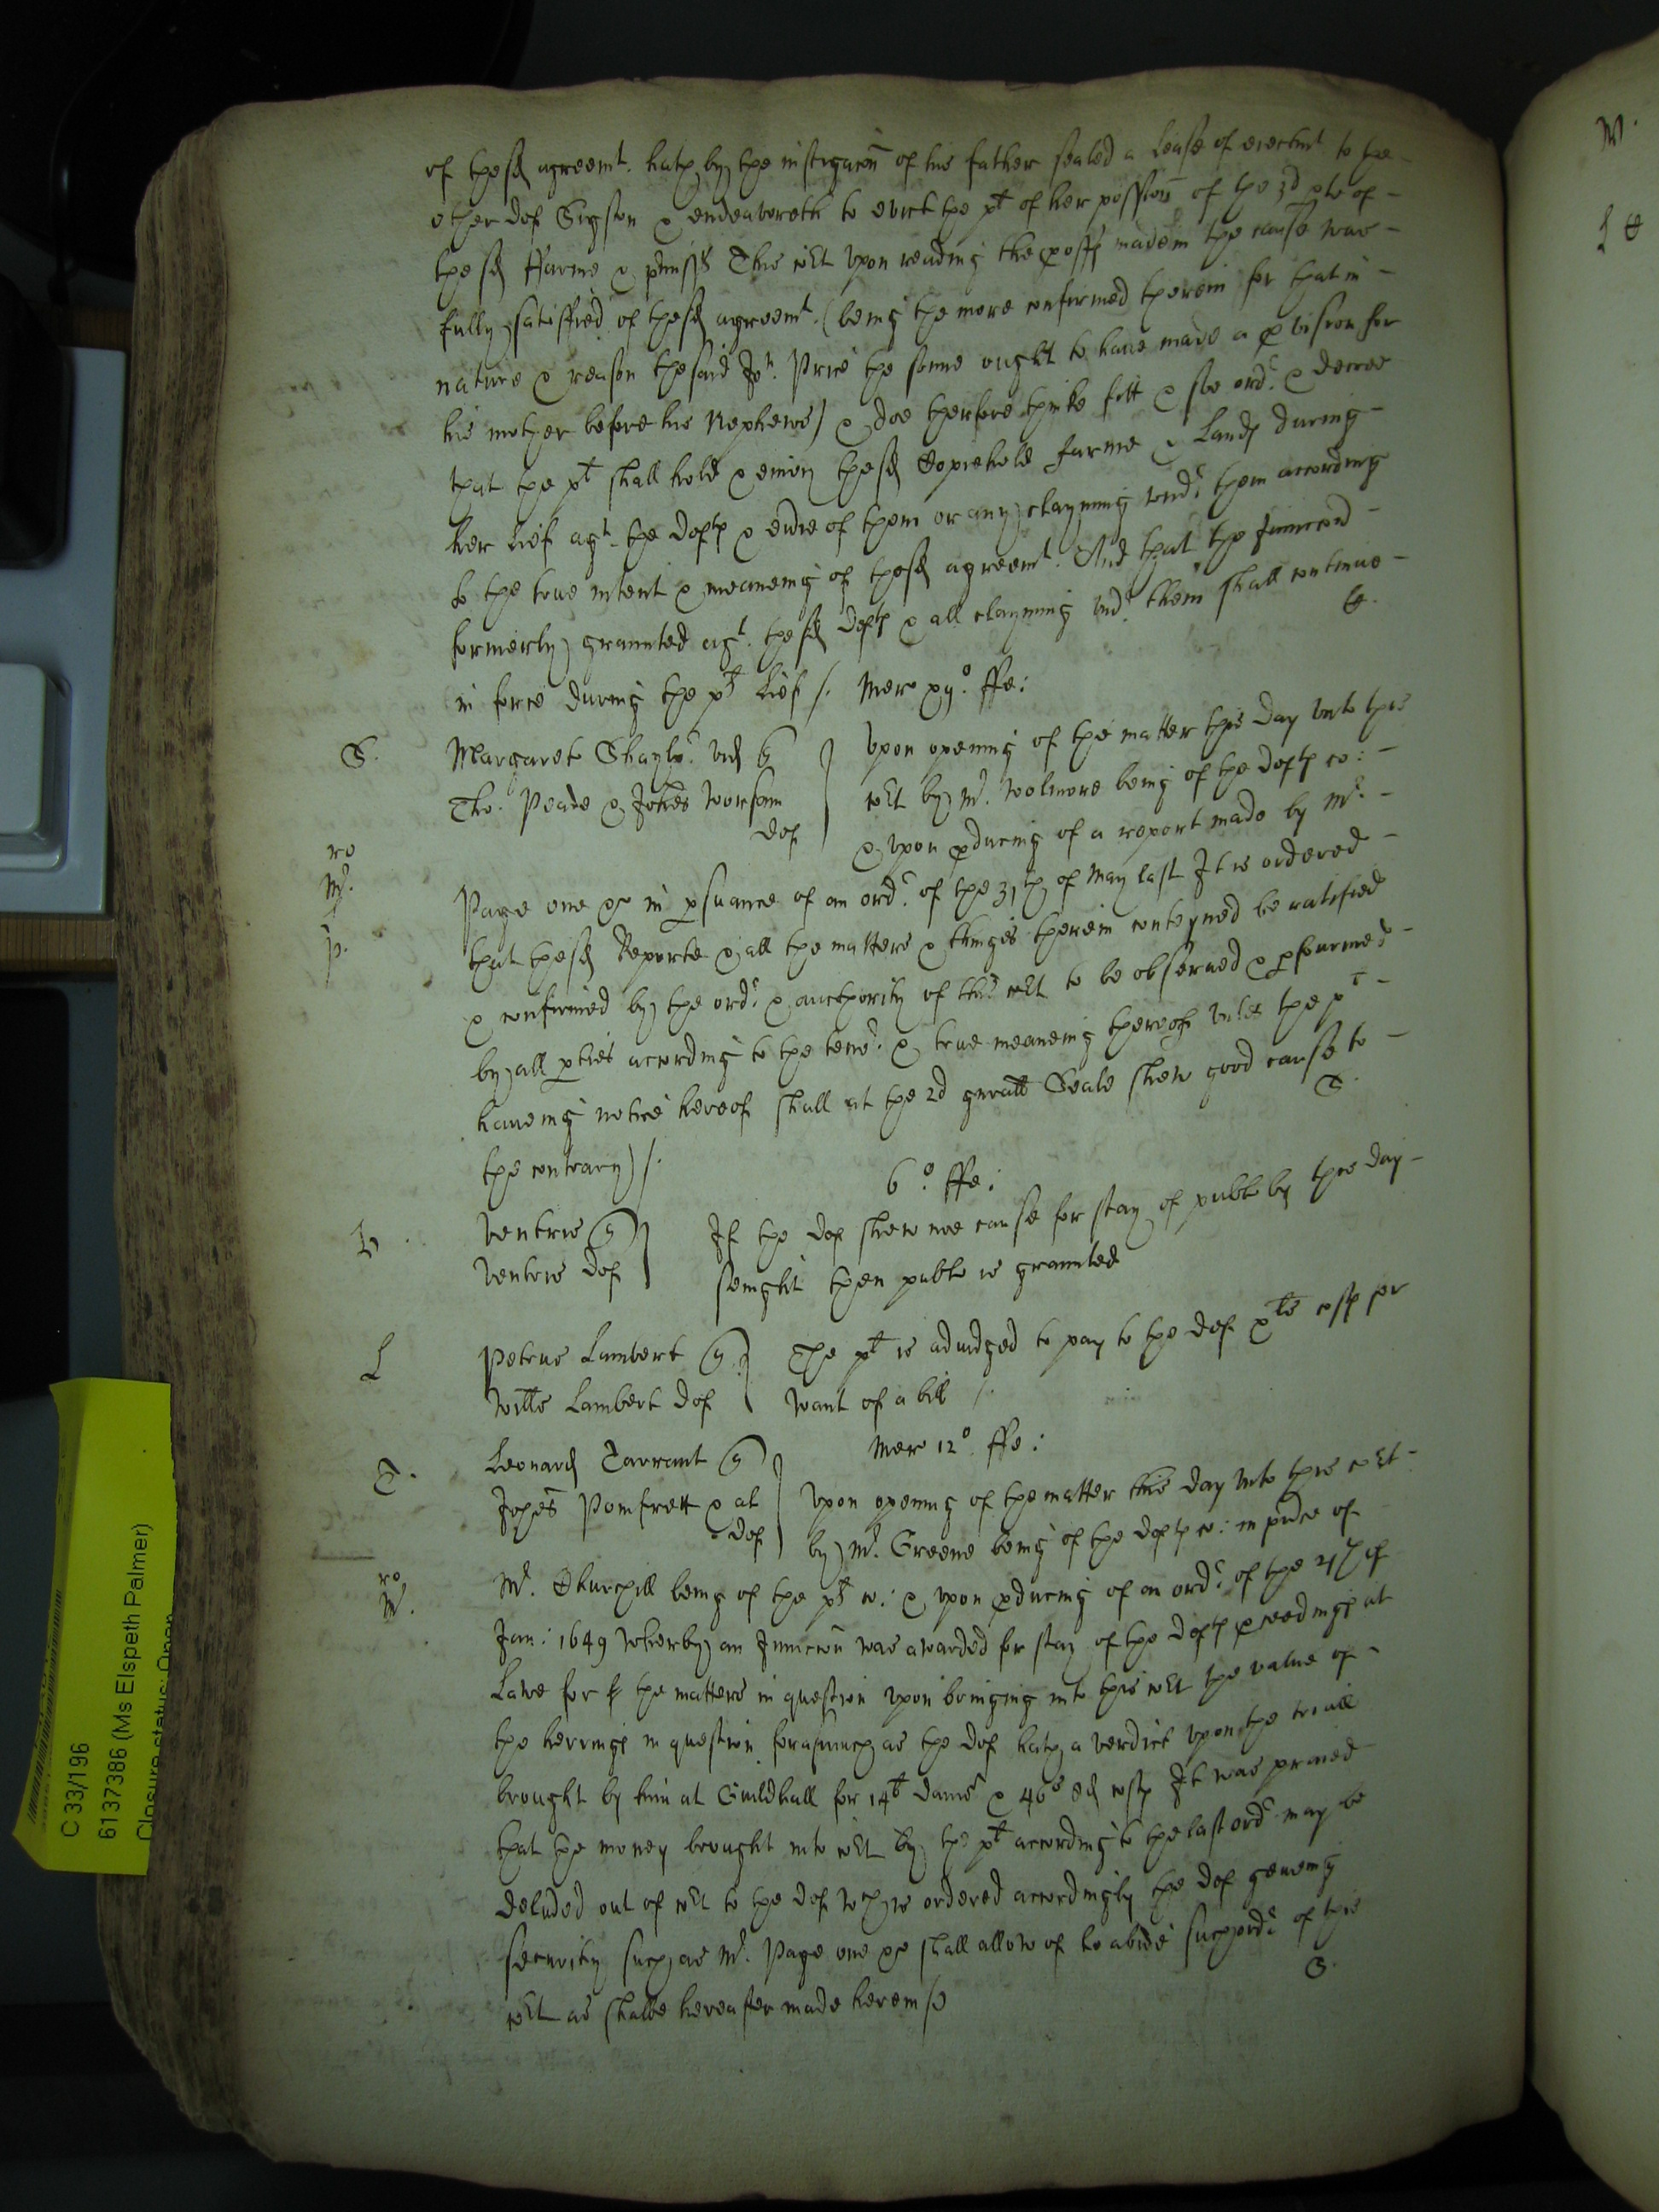 of the sd agreemt. hath by the instigacon of his father sealed a Lease of eiectmt to the
other def Sigson & endeavoreth to evict the plt of her possion of the 3d pte of
the sd ffarme & pmiss This cot Vpon reading the proffs made in the cause was
fully satisfied of the sd agreemt. (being the more confirmed therein for that in
nature & reason the said Jon. Price the sonne ought to have made a pvision for
his mother before his Nephewes) & doe therfore thinke fitt & soe ordr. & decree
that the plt shall hold & enioy the sd Copiehold farme & Lands during
her lief agt. the defts & eure of them or any clayming undr them according
to the true intent & meaneing of the sd agreemt. And that the Iniunccon
formerly graunted agt. the sd defts & all clayming undr. them shall continue
in force during the plts lief /. Merc xijo. ffe:
S. Margarete Shayler vid q
Tho. Peade & Johes Worsam
def
Vpon opening of the matter this day vnto this
cot by Mr. Wolmore being of the defts co:
& vpon pducing of a report made by Mr.
ro
Mr.
p.
Page one &c in psuance of an ordr. of the 31th of May last It is ordered
that the sd Reporte & all the matters & thinges therein conteyned be ratified
& confirmed by the ordr. & aucthority of this cot to be observed & pfourmed
by all pties according to the tenor. & true meaneing thereof vnles the plt
haueing notice hereof shall at the 2d gnrall Seale shew good cause to
the contrary /.
S.
6o. ffe:
V. Ventris q
Ventris def
If the def shew noe cause for stay of publc by this day
senight then publc is graunted
L Petrus Lambert q
Wills Lambert def
The plt is adiudged to pay to the def xxs costs for
want of a bill /.
Merc 12o. ffe:
T. Leonard Tarrant q
Johes Pomfrett & al
def
Vpon opening of the matter this day vnto this cot
by Mr. Greene being of the defts co: in pnce of
ro
Mr.
Mr. Churchill being of the plts co: & vpon pducing of an ordr. of the 21th of
Jan: 1649 wherby an Iniuccon was awarded for stay of the defts pceedings at
Lawe for the matters in question vpon bringing into this cot the value of
the herrings in question forasmuch as the def hath a verdict vpon the triall
brought by him at Guildhall for 14l dams & 46s 8d costs It was prayed
that the money brought into cot by the plt according to the last ordr may be
deliued out of cot to the def wch is ordered accordingly the def geueing
security such as Mr. Page one &c shall allow of to abide such ordr of this
cot as shalbe hereafter made herein /
C 33/196
6137386 (Ms Elspeth Palmer)
Closure status: Open